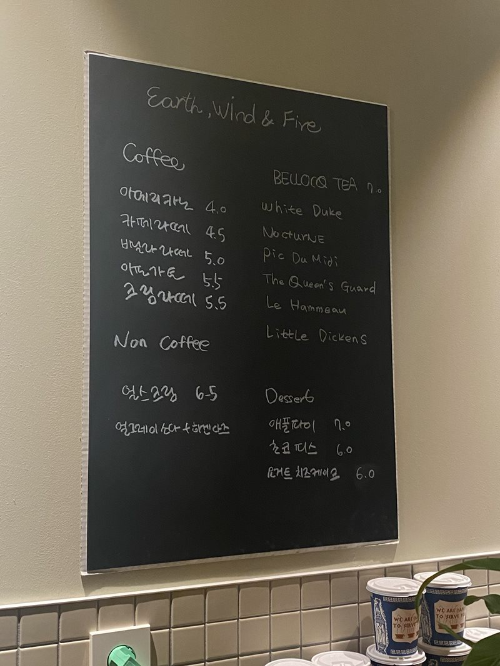 Earth, Wind & Fire
Coffee
아메리카노 4.0
카페라떼 4.5
바닐라라떼 5.0
아포가토 5.5
크림라떼 5.5
Non Coffee
얼스크림 6.5
얼그레이소다 + 하겐다즈
BELLOCQ TEA 7.0
White Duke
NOCTURNE
Pic Du Midi
The Queen's Guard
Le Hammeau
Little Dickens
Dessert
애플파이 7.0
초코 퍼스 6.0
요거트 치즈케이크 6.0
WE ARE
TO SERVE
WE ARE
TO SERVE